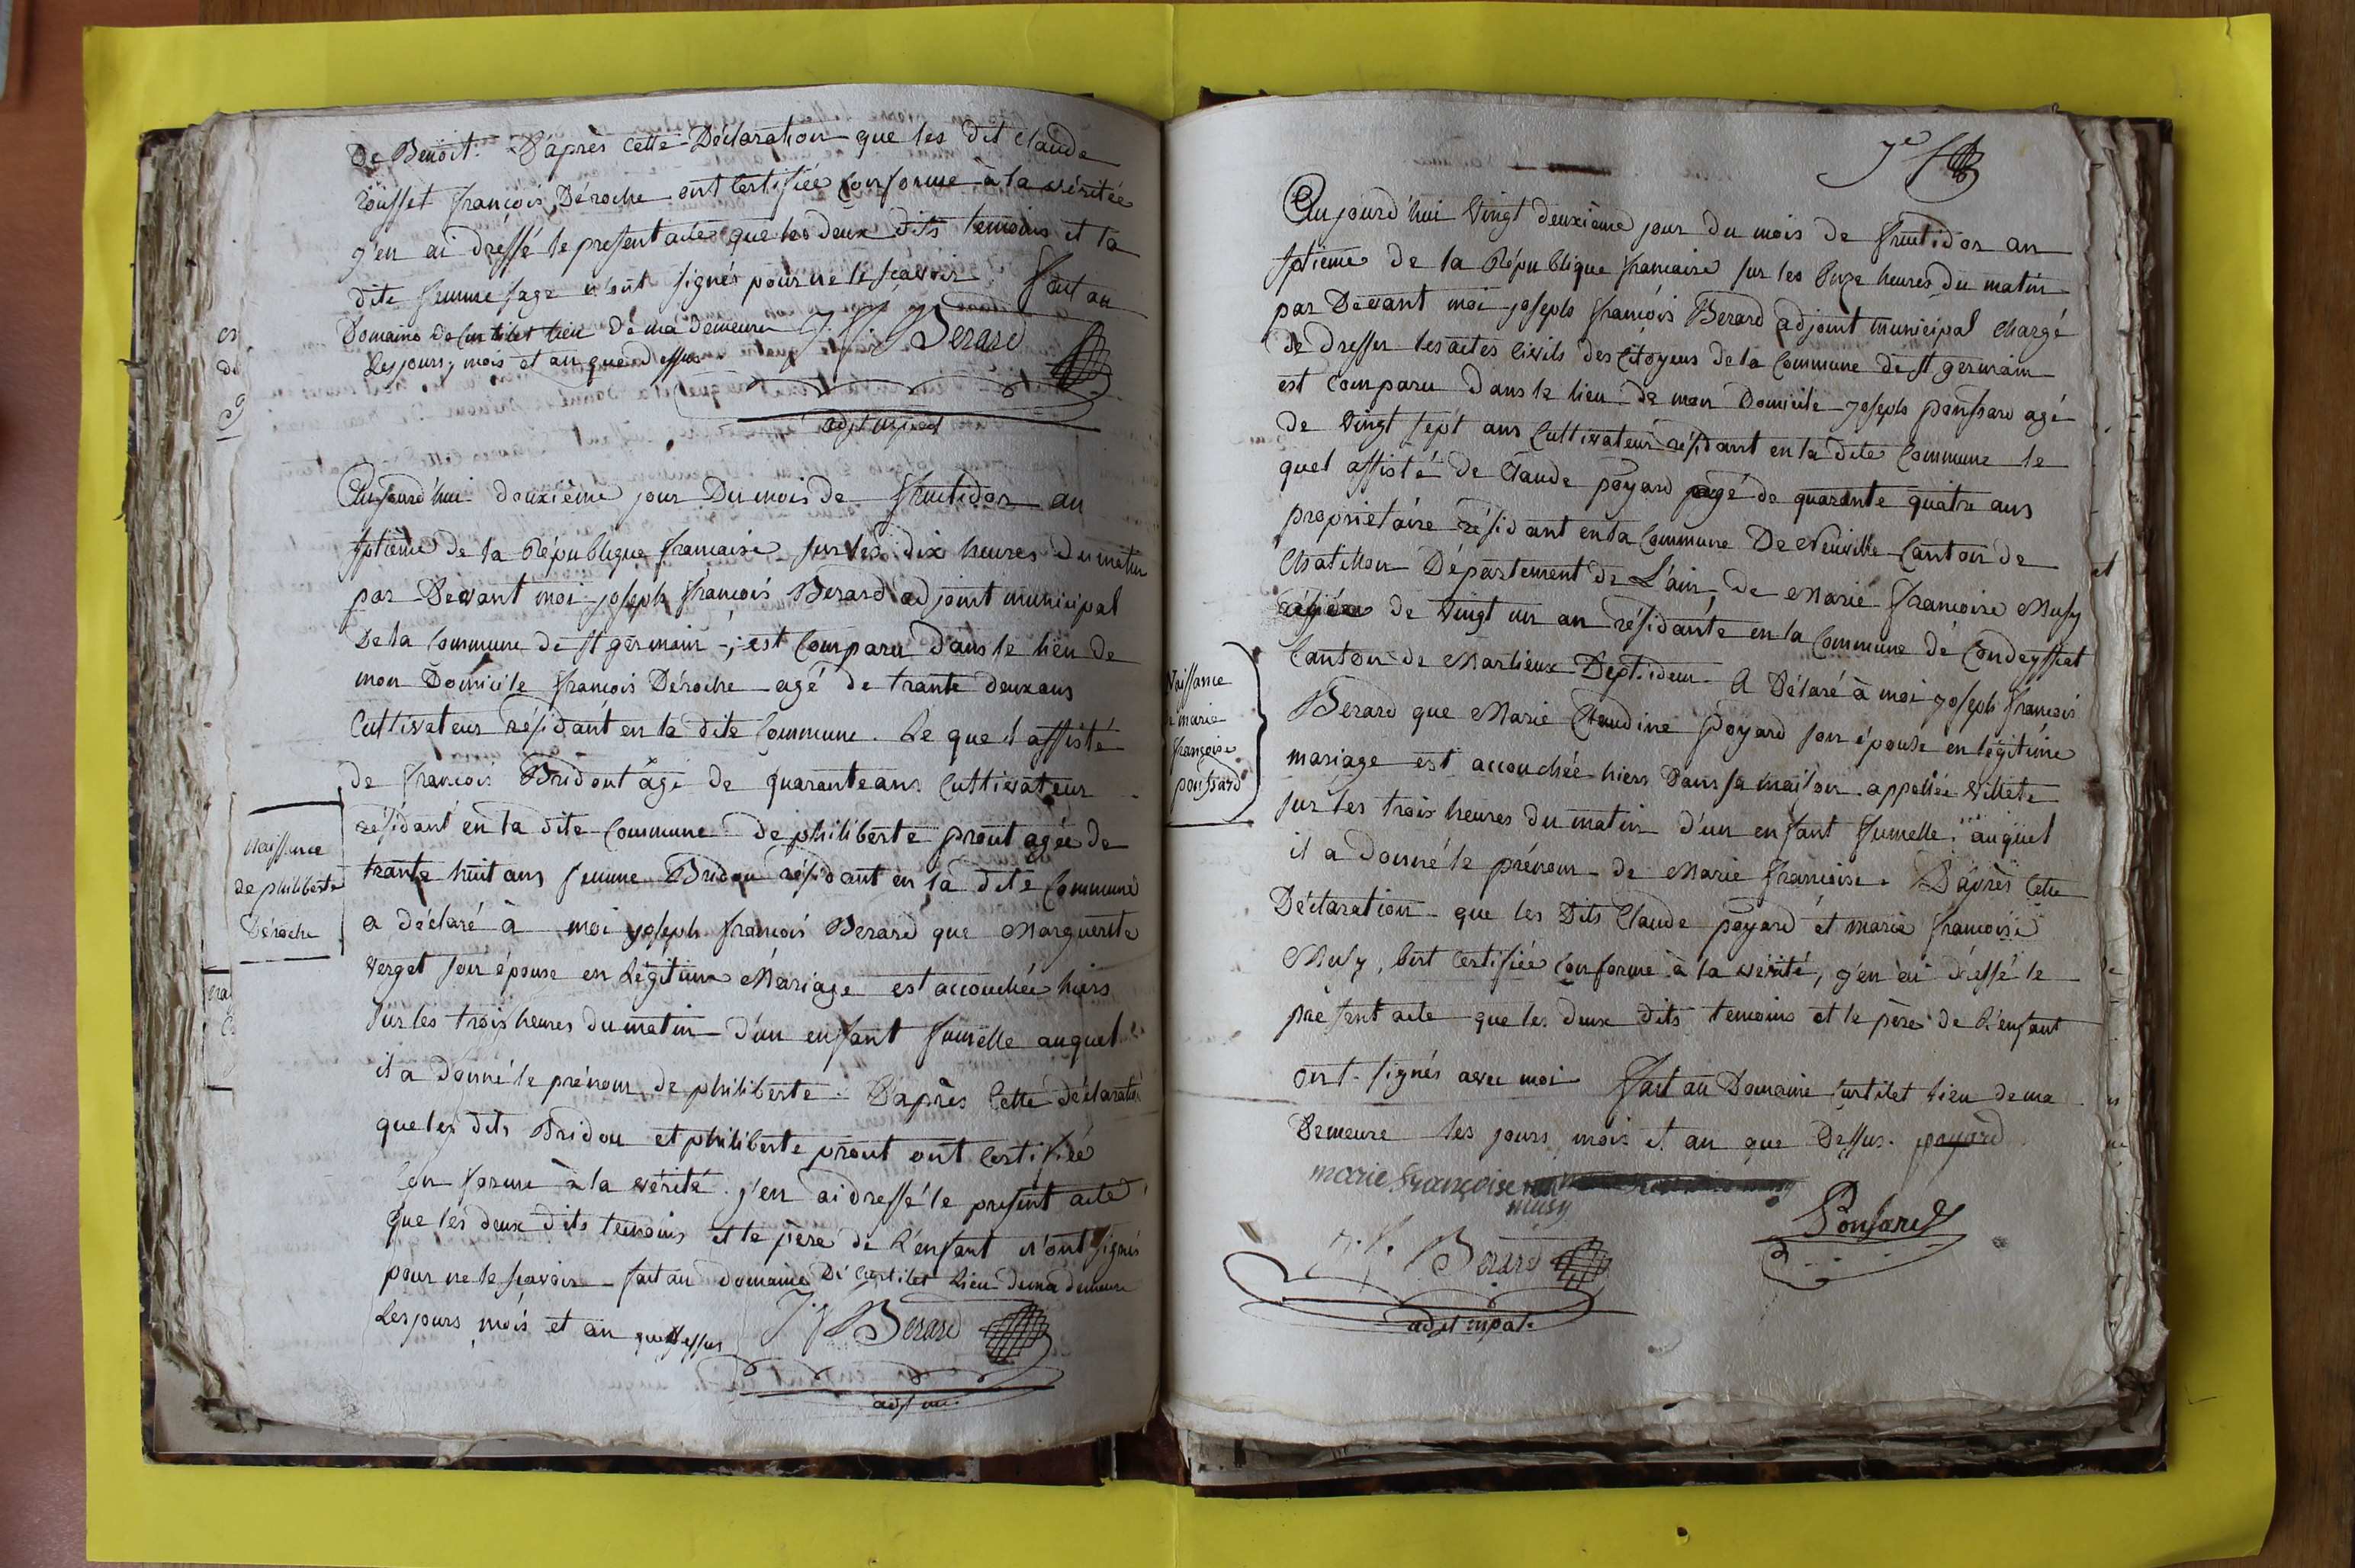 De Benoit. D'après cette Déclaration que les dit Claude
rousset françois Déroche ont Certifiée Conforme à la véritée
j'en ai dressé le present acte que les deux dits temoins et la
dite femme sage n'ont signés pour ne le scavoir. fait au
Domaine de Curtilet lieu de ma demeure J. f. Berard
les jours, mois et an que dessus.
adjt mpal
Aujourd'hui deuxième jour Du mois de fructidor an
sptieme de la République francaise sur les dix heures du matin
par Devant moi joseph françois Berard adjoint municipal
De la Commune de st germain, est Comparu dans le lieu de
mon Domicile françois Déroche agé de trante deux ans
Cultivateur résidant en la dite Commune. Le quel assisté
de francois Bridont âgé de quarante ans Cultivateur
résidant en la dite Commune de philiberte prout agée de
trante huit ans femme Bridou résidant en la dite Commune
a déclaré à moi joseph francois Berard que Marguerite
verget son épouse en Légitime Mariage est accouchée hiers
sur les trois heures du matin d'un enfant fumelle auquel
il a donné le prénom de philiberte. D'après Cette déclaration
que les dits Bridou et philiberte prout ont Certifiée
Conforme à la vérité. j'en ai dressé le present acte
que les deux dits temoins et le père de L'enfant n'ont signés
pour ne le scavoir fait au domaine De Curtilet Lieu de ma demeure
Les jours mois et an que dessus J. f Berard
adjt mu.
Naissance
de philiberte
Déroche
7e f
Aujourd'hui Vingt deuxième jour Du mois de fructidor an
sptieme de la République francaise sur les Onze heures du matin
par Devant moi joseph françois Berard adjoint municipal chargé
de dresser les actes Civils des Citoyens de la Commune de st germain
est Comparu dans le lieu de mon Domicile joseph ponssard agé
de Vingt sept ans Cultivateur résidant en la dite Commune le
quel assisté de Claude poyard agé de quarante quatre ans
proprietaire résidant en la Commune De Neuville Canton de
Chatillon Département de L'ain, de Marie francoise Musy
agée de Vingt un an résidante en la Commune de Condeyssiat
Canton de Marlieux Dept. idem. A Déclaré à moi joseph françois
Berard que Marie Claudine Poyard son épouse en légitime
mariage est accouchée hiers Dans sa maison appellée Villete
sur les trois heures du matin d'un enfant fumelle auquel
il a donné le prénom de Marie francoise. D'après Cette
Déclaration que les Dits Claude poyard et marie francoise
Musy, Ont Certifiée Conforme à la vérité, j'en ai dressé le
présent acte que les deux dits temoins et le père de L'enfant
ont signés avec moi fait au Domaine Curtilet lieu de ma
Demeure les jours mois et an que Dessus. poyard
marie françoise
musy
Ponsard
J. f. Berard
adjt mpal.
Naissance
de marie
françoise
ponssard